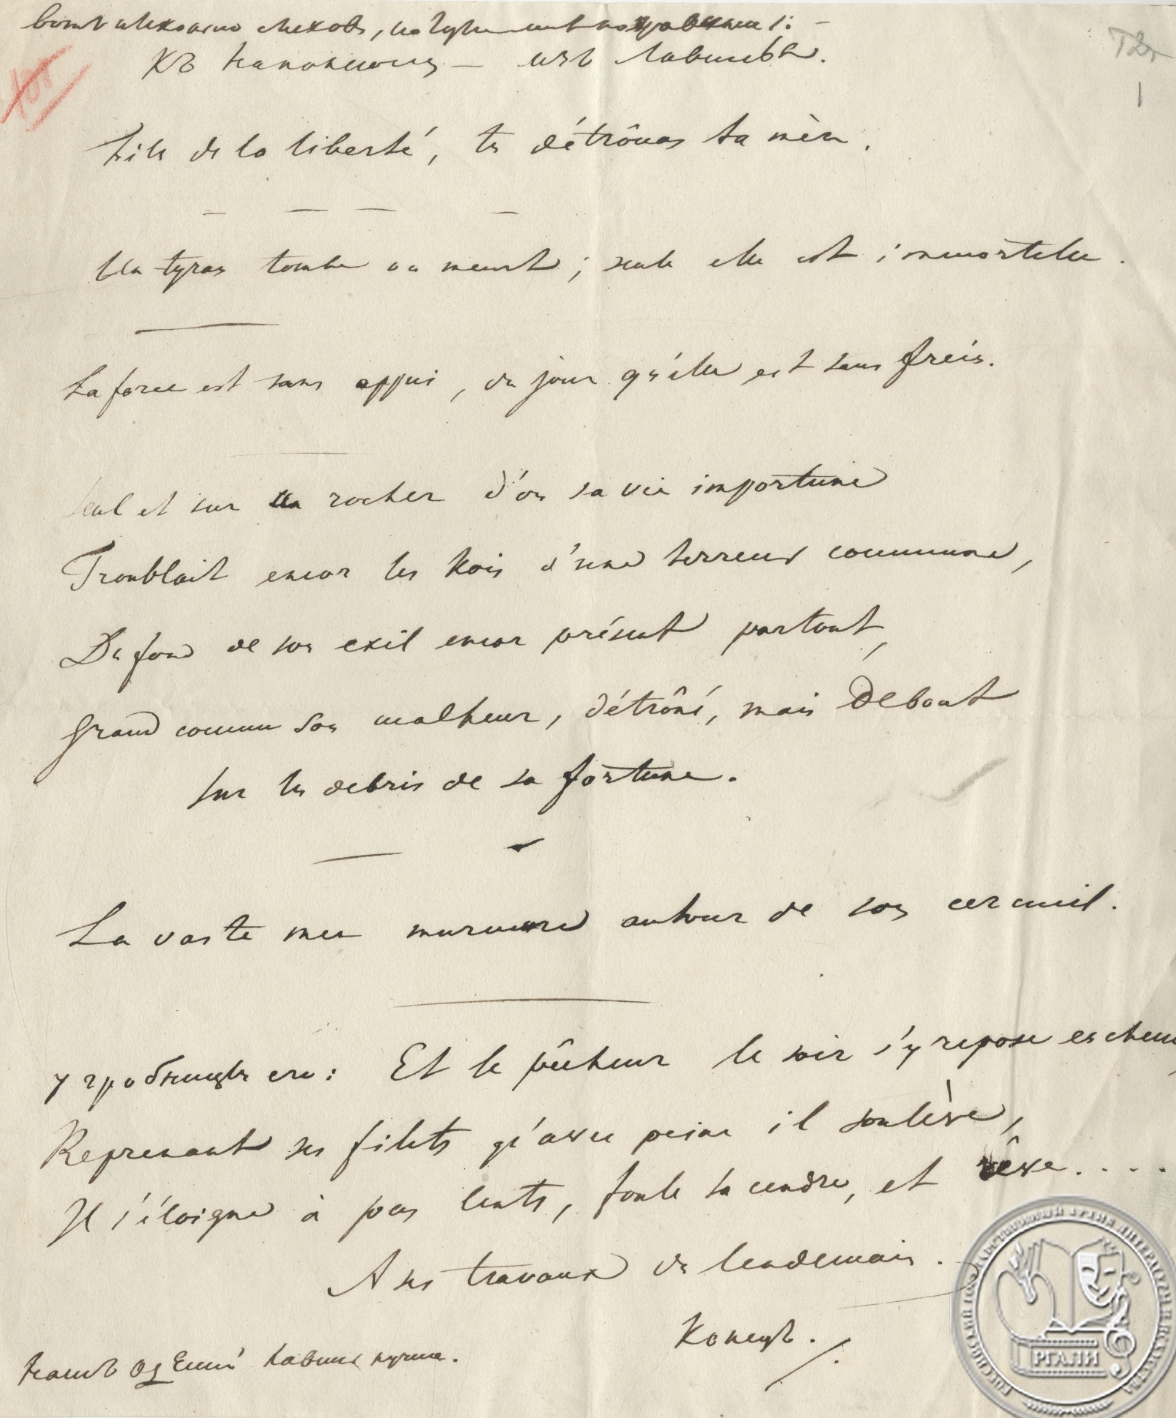 вотъ несколько стиховъ, которые мне понравились: —
Къ Наполеону — изъ Лавиня.
Fils de la liberté, tu détrônas ta mère.
Un tyran tombe ou meurt; seule elle est immortelle.
La force est sans appui, du jour qu'elle est sans frein.
Seul et sur un rocher d'où sa vie importune
Troublait encor les Rois d'une terreur commune,
Du fond de son exil encor présent partout,
Grand comme son malheur, détrôné, mais Debout
Sur les debris de sa fortune.
La vaste mer murmure autour de son cercueil.
у гробницы его: Et le pêcheur le soir s'y repose en chemin,
Reprenant ses filets qu'avec peine il soulève,
Il s'éloigne à pas lents, foule ta cendre, et rêve....
A ses travaux du lendemain.
Конецъ.
РГАЛИ
РОССИЙСКИЙ ГОСУДАРСТВЕННЫЙ АРХИВ ЛИТЕРАТУРЫ И ИСКУССТВА